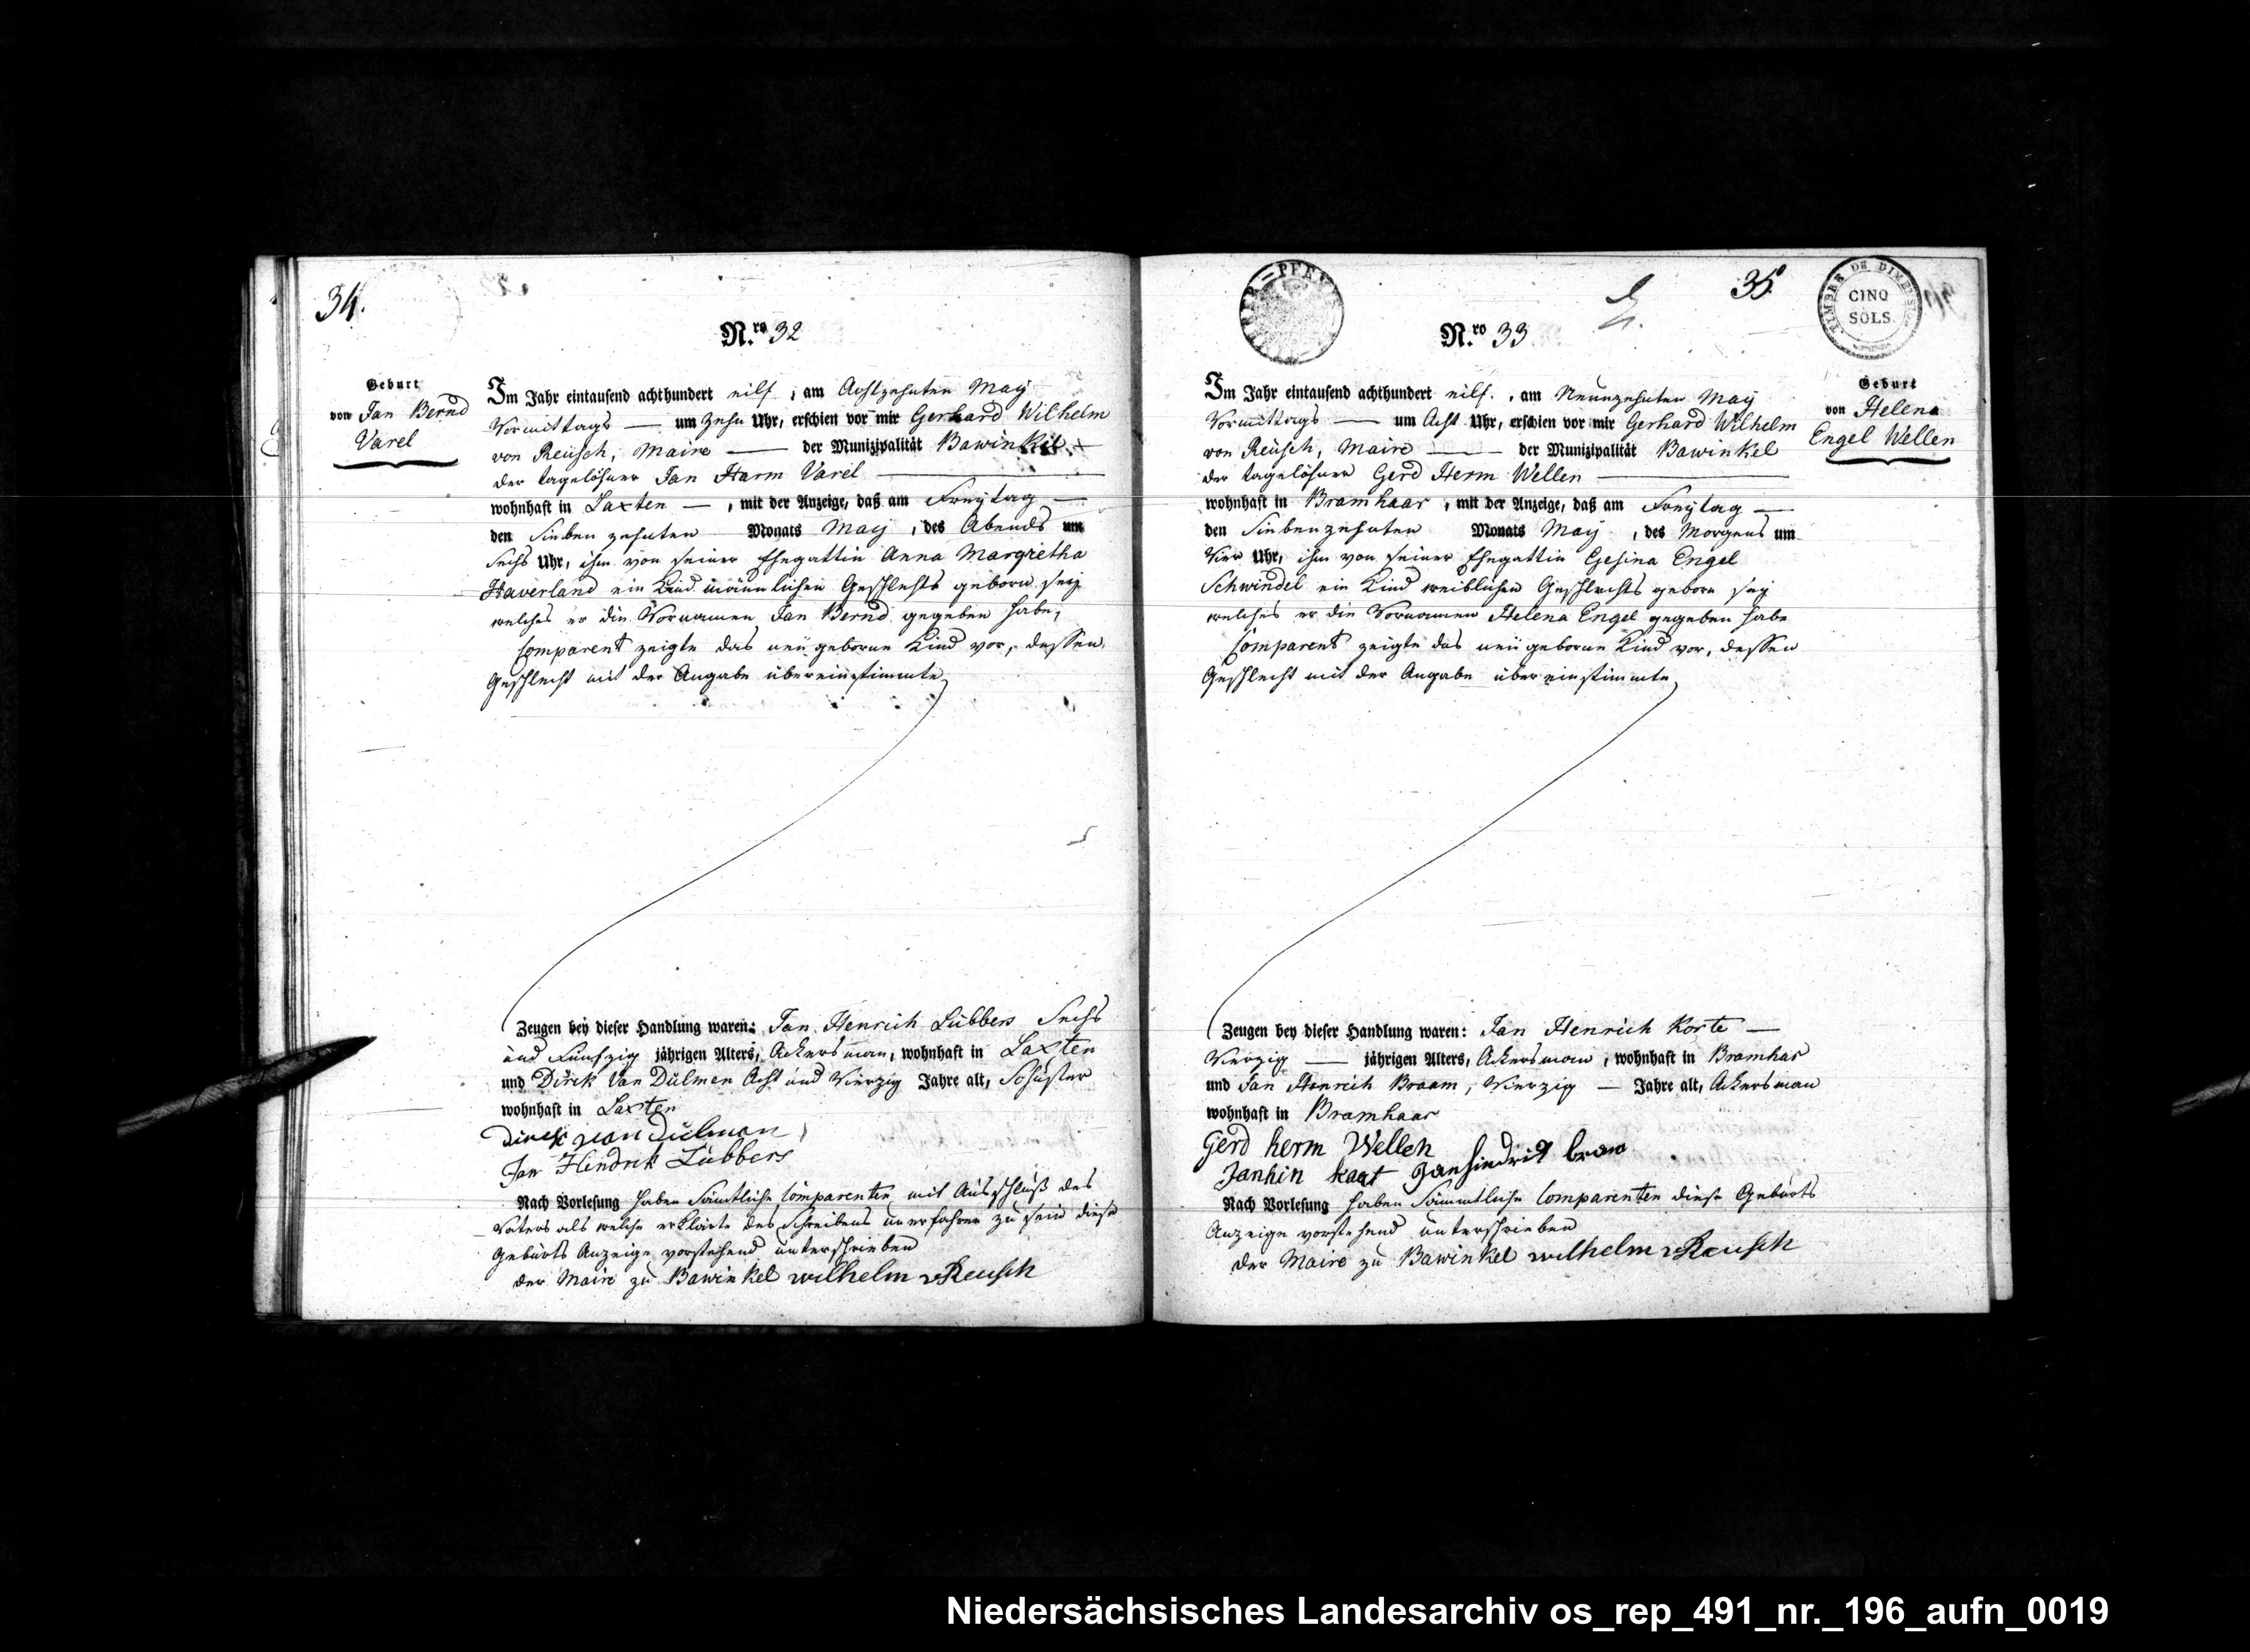 34.
N.ro 32
Geburt
von Jan Bernd
Varel
Im Jahr eintausend achthundert eilf, am Achtzehnten May
Vormittags — um Zehn Uhr, erschien vor mir Gerhard Wilhelm
von Reusch, Maire — der Munizipalität Bawinkel
der tagelöhner Jan Harm Varel —
wohnhaft in Laxten —, mit der Anzeige, daß am Freytag —
den Siebenzehnten Monats May, des Abends um
Sechs Uhr, ihm von seiner Ehegattin Anna Margretha
Haverland ein Kind männlichen Geschlechts geborn sey
welches er die Vornamen Jan Bernd gegeben habe,
Comparent zeigte das neugeborne Kind vor, dessen
Geschlecht mit der Angabe übereinstimmte
Zeugen bey dieser Handlung waren: Jan Henrich Lübbers Sechs
und Funfzig jährigen Alters, Ackersman, wohnhaft in Laxten
und Dirck Van Dülmen Acht und Vierzig Jahre alt, Schuster
wohnhaft in Laxten
Dirck van Dülman
Jan Hindrik Lübbers
Nach Vorlesung haben Sämtliche Comparenten mit Ausschluß des
Vaters als welche erklärte des Schreibens unerfahren zu sein diese
Geburts Anzeige vorstehend unterschrieben
der Maire zu Bawinkel wilhelm vReusch
35.
TIMBRE DE DIMENS
CINQ
SOLS.
N.ro 33
Geburt
von Helena
Engel Wellen
Im Jahr eintausend achthundert eilf., am Neunzehnten May
Vormittags — um Acht Uhr, erschien vor mir Gerhard Wilhelm
von Reusch, Maire — der Munizipalität Bawinkel
der tagelöhner Gerd Herm Wellen —
wohnhaft in Bramhaar, mit der Anzeige, daß am Freytag —
den Siebenzehnten Monats May, des Morgens um
Vier Uhr, ihm von seiner Ehegattin Gesina Engel
Schwindel ein Kind weiblichen Geschlechts geborn sey
welches er die Vornamen Helena Engel gegeben habe
Comparent zeigte das neugeborne Kind vor, dessen
Geschlecht mit der Angabe übereinstimmte
Zeugen bey dieser Handlung waren: Jan Henrich Korte —
Vierzig — jährigen Alters, Ackersman, wohnhaft in Bramhar
und Jan Henrich Braam, Vierzig — Jahre alt, Ackersman
wohnhaft in Bramhaar
Gerd herm Wellen
Janhin kaat Janhindrik bram
Nach Vorlesung haben Sämmtliche Comparenten diese Geburts
Anzeige vorstehend unterschrieben
der Maire zu Bawinkel wilhelm vReusch
Niedersächsisches Landesarchiv os_rep_491_nr._196_aufn_0019